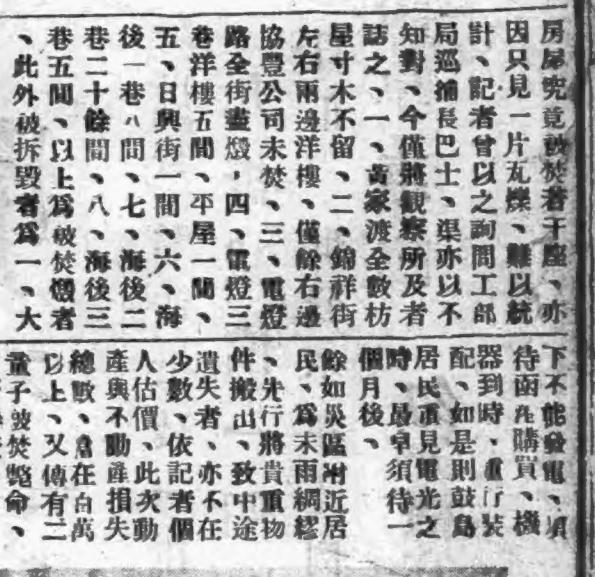 房屋究竟被焚若干座、亦
因只見一片瓦爍、難以統
計、記者曾以之詢問工部
局巡捕長巴士、渠亦以不
知對、今僅將觀察所及者
誌之、一、黃家渡全數枋
屋寸木不留、二、錦祥街
左右兩邊洋樓、僅餘右邊
協豐公司未焚、三、電燈
路全街盡燬，四、電燈三
巷洋樓五間、平屋一間、
五、日興街一間、六、海
後一巷八間、七、海後二
巷二十餘間、八、海後三
巷五間、以上爲被焚燬者
、此外被拆毀者爲一、大
下不能發電、須
待函在購買、機
器到時、重行裝
配、如是則鼓島
居民重見電光之
時、最早須待一
個月後、
餘如災區附近居
民、爲未雨綢繆
、先行將貴重物
件搬出、致中途
遺失者、亦不在
少數、依記者個
人估價、此次動
產與不動產損失
總數、當在百萬
以上、又傳有二
童子被焚斃命、